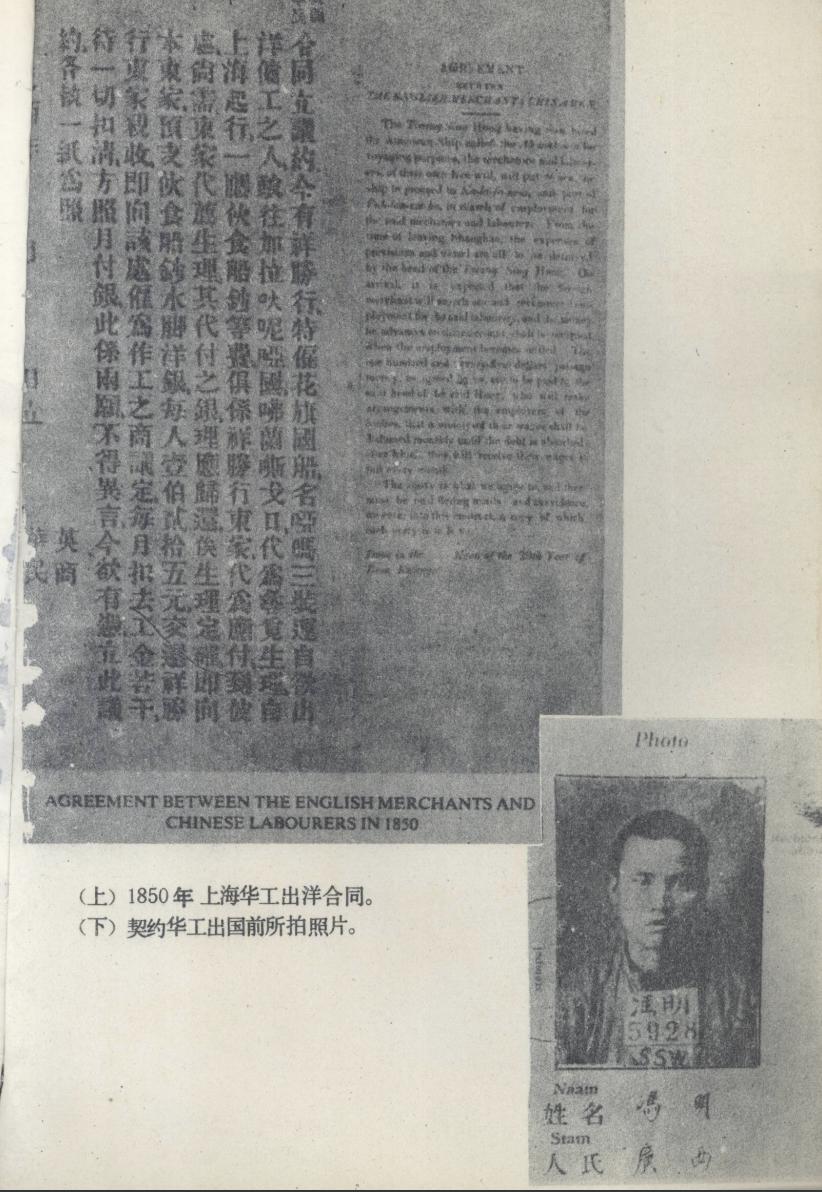 合同立議約今有祥勝行特僱花旗國船名啞嗎三裝運自欲出
洋傭工之人願往加拉 呢啞國 蘭嘶戈口代為尋覓生理自
上海起行一應伙食船鈔等費俱係祥勝行東家代為應付到彼
處尚需東家代薦生理其代付之銀理應歸還俟生理定確即向
本東家預支伙食船鈔水腳洋銀每人壹伯貳拾五元交還祥勝
行東家親收即向該處僱為作工之商議定每月扣去工金若干
待一切扣清方照月付銀此係兩願不得異言今欲有憑立此議
約各執一紙為照
英商
華民
AGREEMENT
BETWEEN
THE ENGLISH MERCHANT & CHINAMEN
The Tseang Sing Hong having now hired
the American Ship called the
voyaging purposes, the mechanics and labour-
ers, of their own free will, will put to sea, the
ship to proceed to and port of
in search of employment for
the said mechanics and labourers. From the
time of leaving Shanghae, the expenses of
provisions and vessel are all to be defrayed
by the head of the Tseang Sing Hong. On
arrival, it is expected that the foreign
merchant will search out and recommend em-
ployment for the said labourers, and the money
he advances on their account, shall be returned
when the employment becomes settled. The
one hundred and twenty-five dollars passage
money, as agreed by us, are to be paid to the
said head of the said Hong, who will make
arrangements with the employers of the
coolies, that a moiety of their wages shall be
deducted monthly until the debt is absorbed:
after which, they will receive their wages in
full every month.
AGREEMENT BETWEEN THE ENGLISH MERCHANTS AND
CHINESE LABOURERS IN 1850
（上）1850年 上海华工出洋合同。
（下）契约华工出国前所拍照片。
Photo
馮明
5928
SSW
Naam
姓名 馮 明
Stam
人氏 廣 西